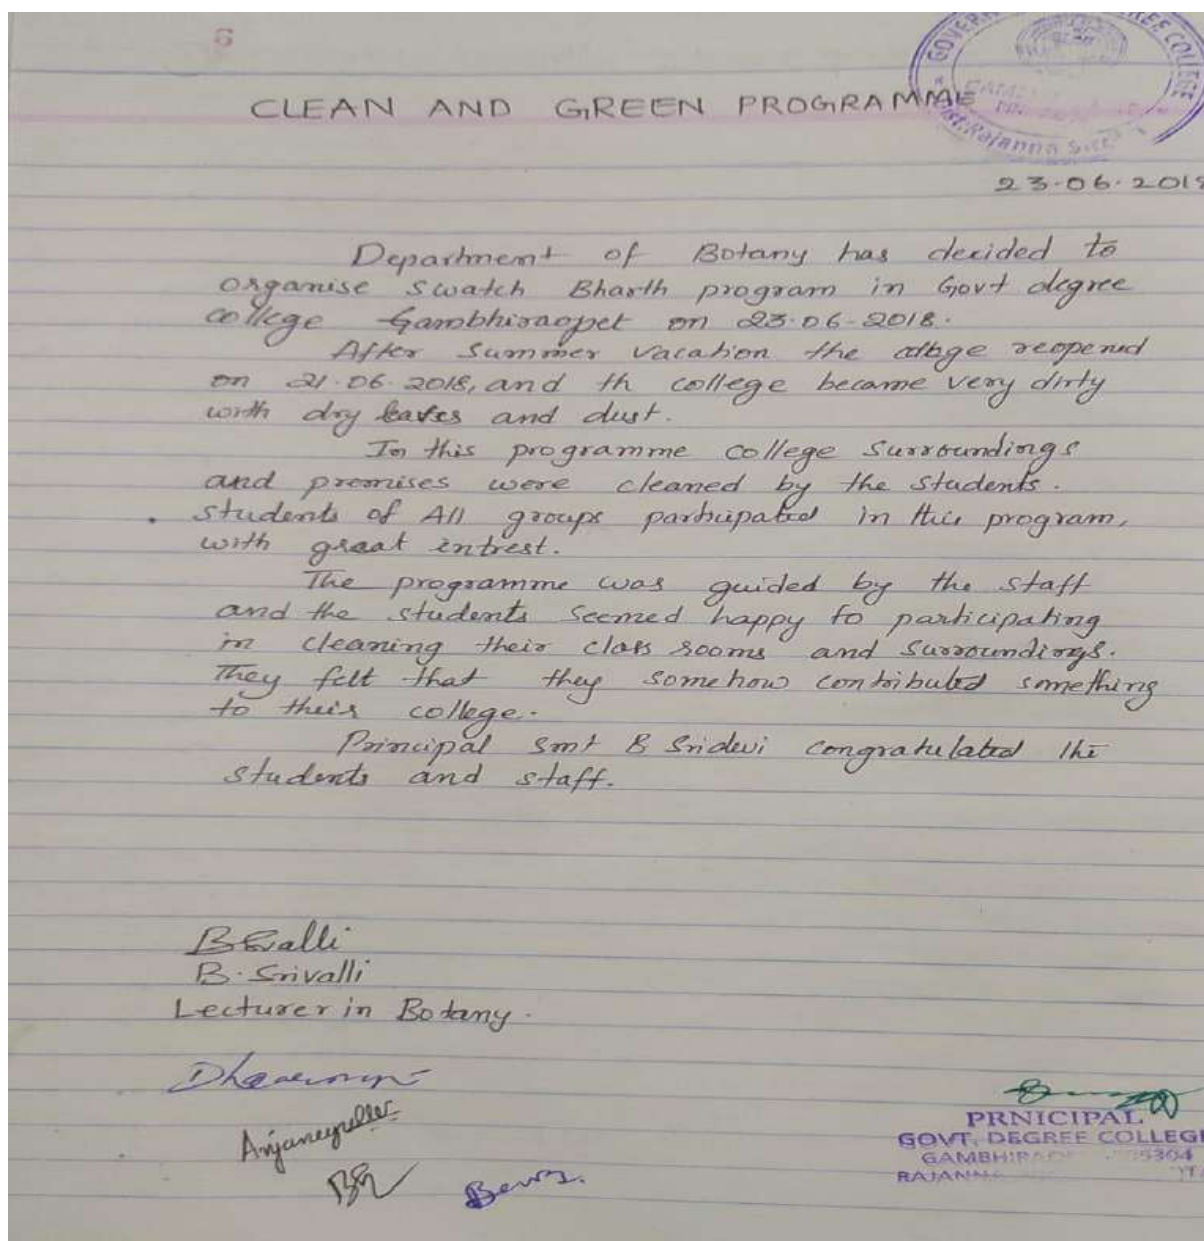 6
GOVERN REE COLLEGE
Dist. Rajanna Sirc
CLEAN AND GREEN PROGRAMME
23-06-2018
Department of Botany has decided to
organise swatch Bharth program in Govt degree
college Gambhiraopet on 23-06-2018.
After Summer vacation the college reopened
on 21-06-2018, and th college became very dirty
with dry leaves and dust.
In this programme college Surroundings
and premises were cleaned by the students.
students of All groups participated in this program,
with great intrest.
The programme was guided by the staff
and the students seemed happy to participating
in cleaning their class rooms and surroundings.
They felt that they somehow contributed something
to their college.
Principal smt B Sridevi congratulated the
students and staff.
B. Srivalli
Lecturer in Botany.
Anjaneyullu
PRNICIPAL
GOVT. DEGREE COLLEGE
GAMBHIRAO 5304
RAJANNA